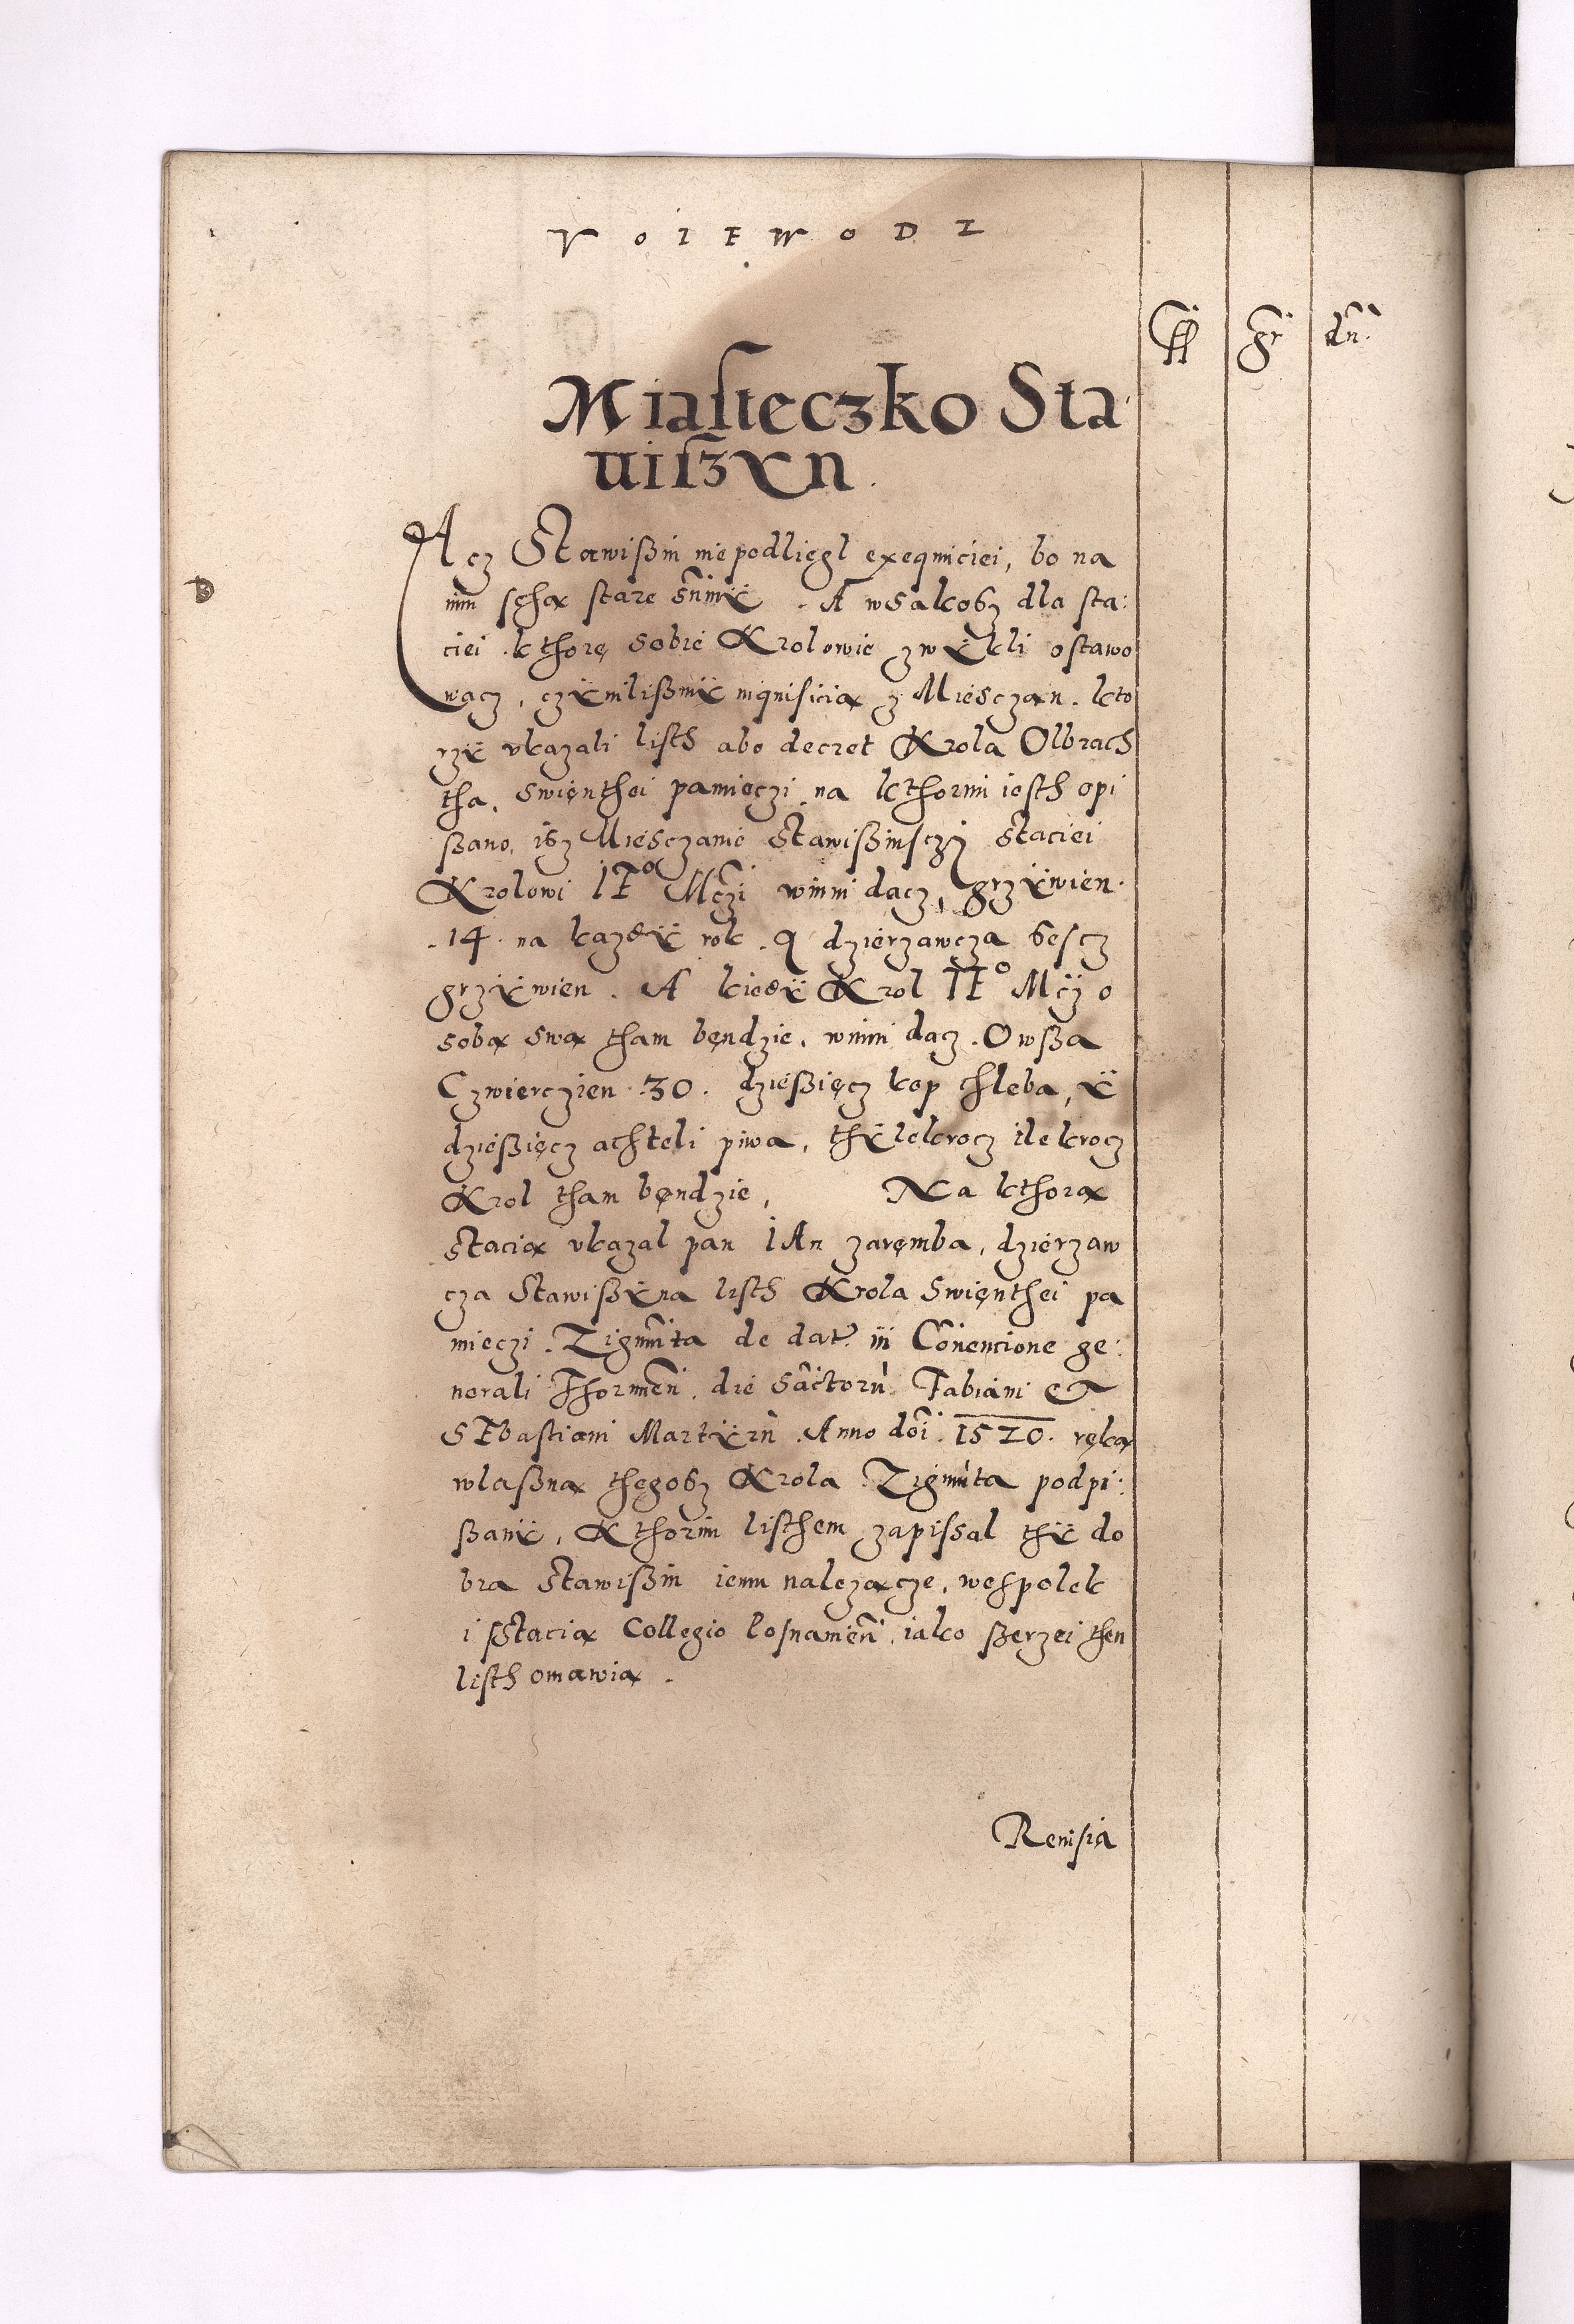 VOIEWODZ
fl gr dn.
Miasteczko Sta
wiszyn.
Acz Stawißin nie podliegl exequuciei, bo na
nim sęhą stare snimÿ. A wsakoßz dla sta:
ciei kthorę sobie Krolowie zwÿkli ostawo
wacz, czÿnilißmÿ inquisicią z Miesczan. kto
rzÿ vkazali listh abo decret Krola Olbrach
tha, swięnthei pamieczi, na kthorim iesth opi
ßano, isz Miesczanie Stawißinsczÿ staciei
Krolowi IEº Mczi winni dacz, grzÿwien
.14. na kazdÿ rok. a dzierzawcza ßescz
grzÿwien. A kiedÿ Krol IEº Mczÿ o
sobą swą tham będzie, winni dacz. Owßa
Czwierczien .30. dzießięcz kop chleba, ÿ
dzießięcz achteli piwa, thÿlekrocz ilekrocz
Krol tham bęndzie, Na kthorą
stacią vkazal pan IAn zaręmba, dzierzaw
cza Stawißÿna listh Krola swięnthei pa
mieczi. Zigmũta de dat. in Cõnencione ge:
norali Thorunẽn. die sãctorũ Fabiani et
SEbastiani Martÿrũ. Anno doi. 1520. ręką
wlaßną thegoßz Krola Zigmũta podpi:
ßanÿ, Kthorim listhem zapissal thÿ do
bra Stawißin iemu nalezącze, wespolek
i sstacią Collegio Posnamẽn. iako ßerzei then
listh omawia.
Reuisia